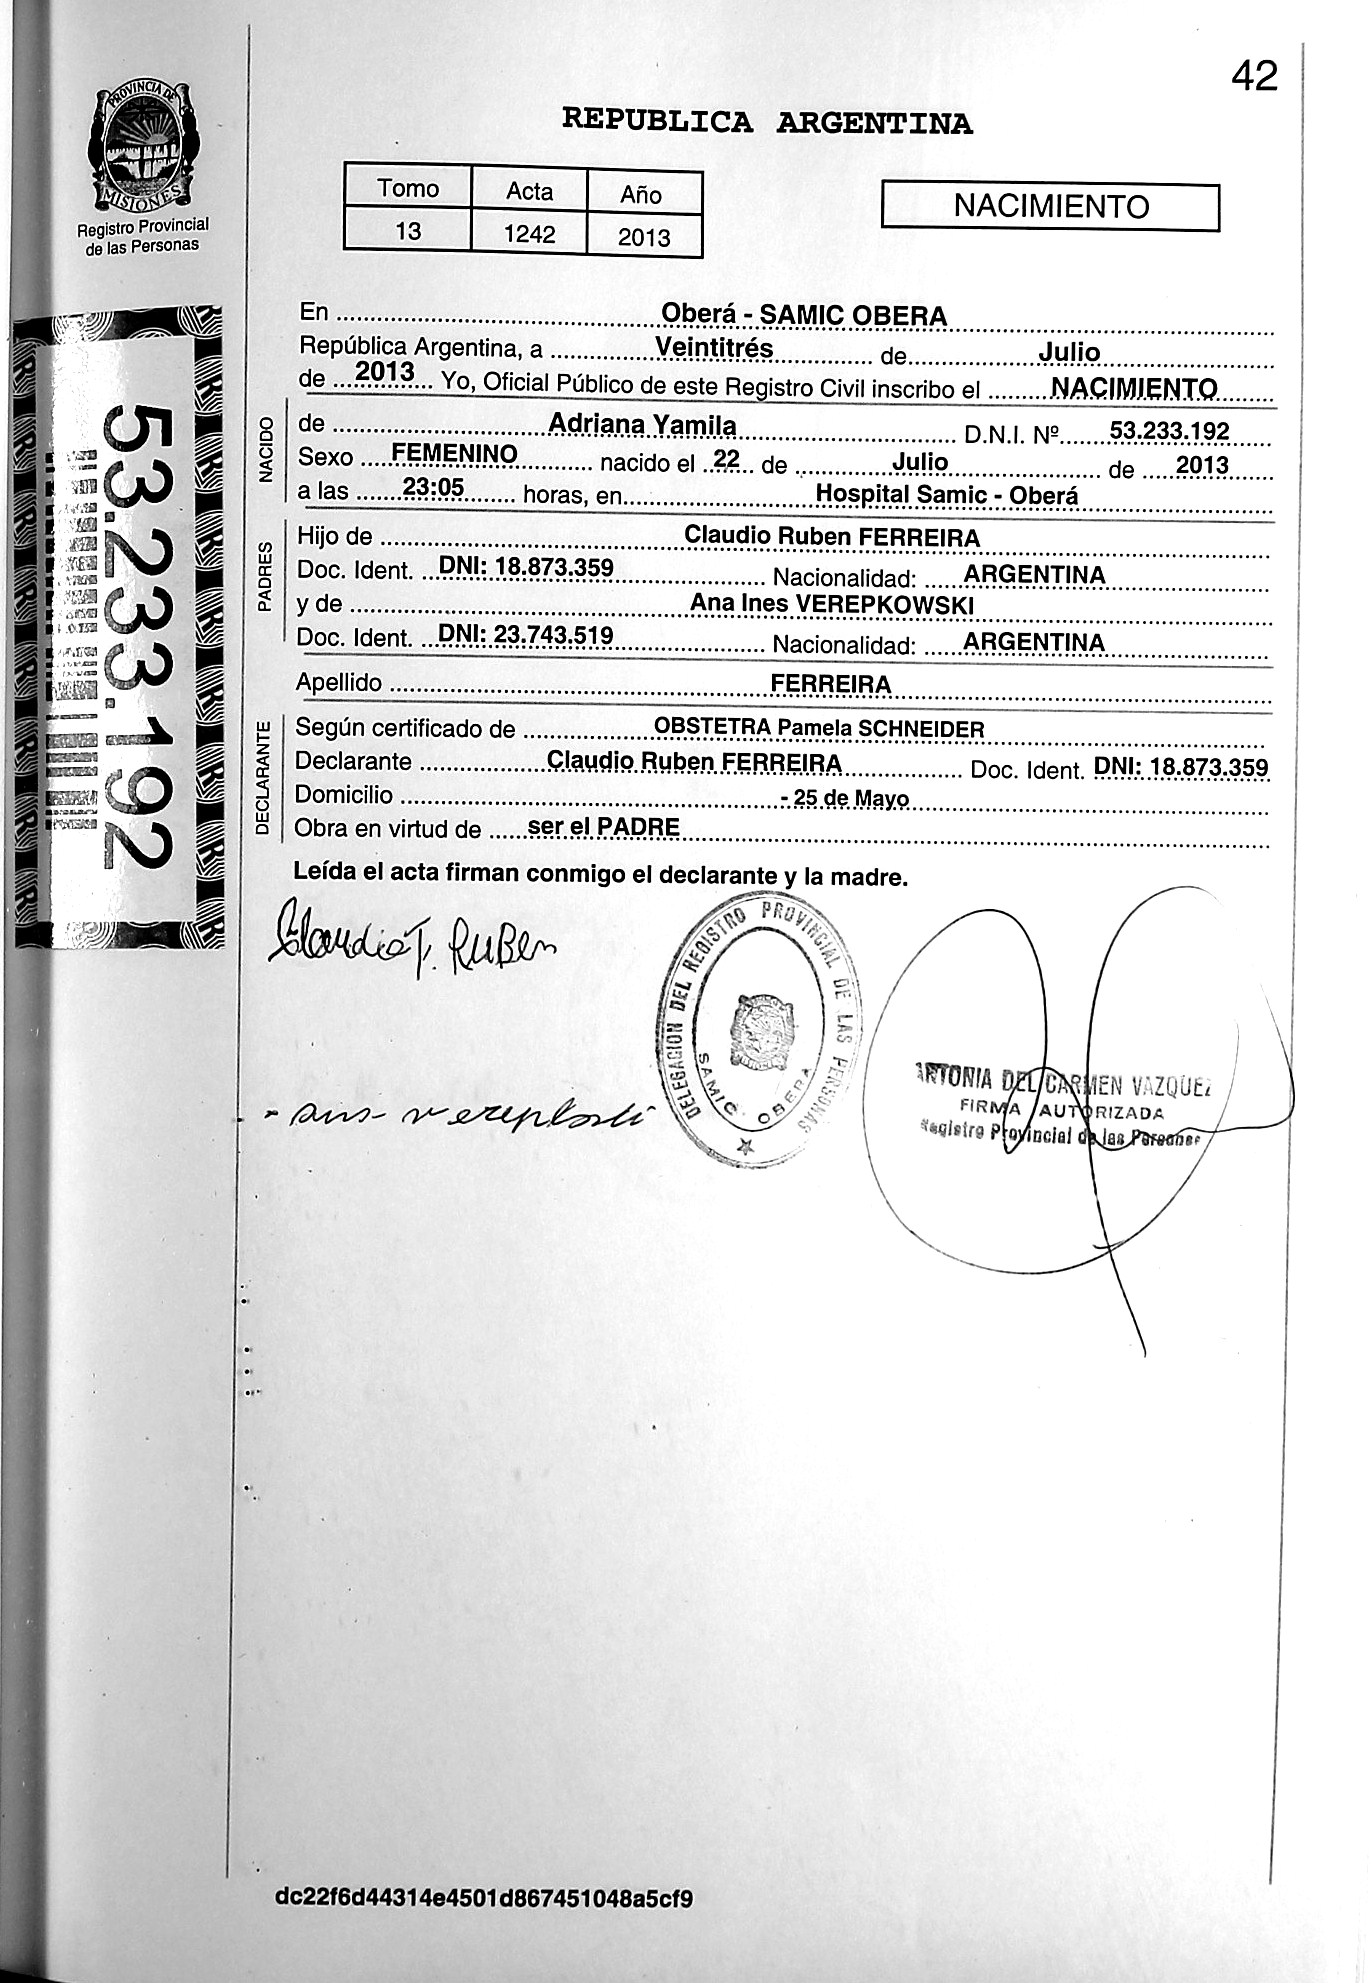 42
PROVINCIA DE
MISIONES
Registro Provincial
de las Personas
REPUBLICA ARGENTINA
Tomo Acta Año
13 1242 2013
NACIMIENTO
53.233.192
En Oberá - SAMIC OBERA
República Argentina, a Veintitrés de Julio
de 2013 Yo, Oficial Público de este Registro Civil inscribo el NACIMIENTO
NACIDO
de Adriana Yamila D.N.I. Nº 53.233.192
Sexo FEMENINO nacido el 22 de Julio de 2013
a las 23:05 horas, en Hospital Samic - Oberá
PADRES
Hijo de Claudio Ruben FERREIRA
Doc. Ident. DNI: 18.873.359 Nacionalidad: ARGENTINA
y de Ana Ines VEREPKOWSKI
Doc. Ident. DNI: 23.743.519 Nacionalidad: ARGENTINA
Apellido FERREIRA
DECLARANTE
Según certificado de OBSTETRA Pamela SCHNEIDER
Declarante Claudio Ruben FERREIRA Doc. Ident. DNI: 18.873.359
Domicilio - 25 de Mayo
Obra en virtud de ser el PADRE
Leída el acta firman conmigo el declarante y la madre.
Claudio F. RuBen
DELEGACION DEL REGISTRO PROVINCIAL DE LAS PERSONAS
SAMIC OBERA
ANTONIA DEL CARMEN VAZQUEZ
FIRMA AUTORIZADA
Registro Provincial de las Personas
dc22f6d44314e4501d867451048a5cf9